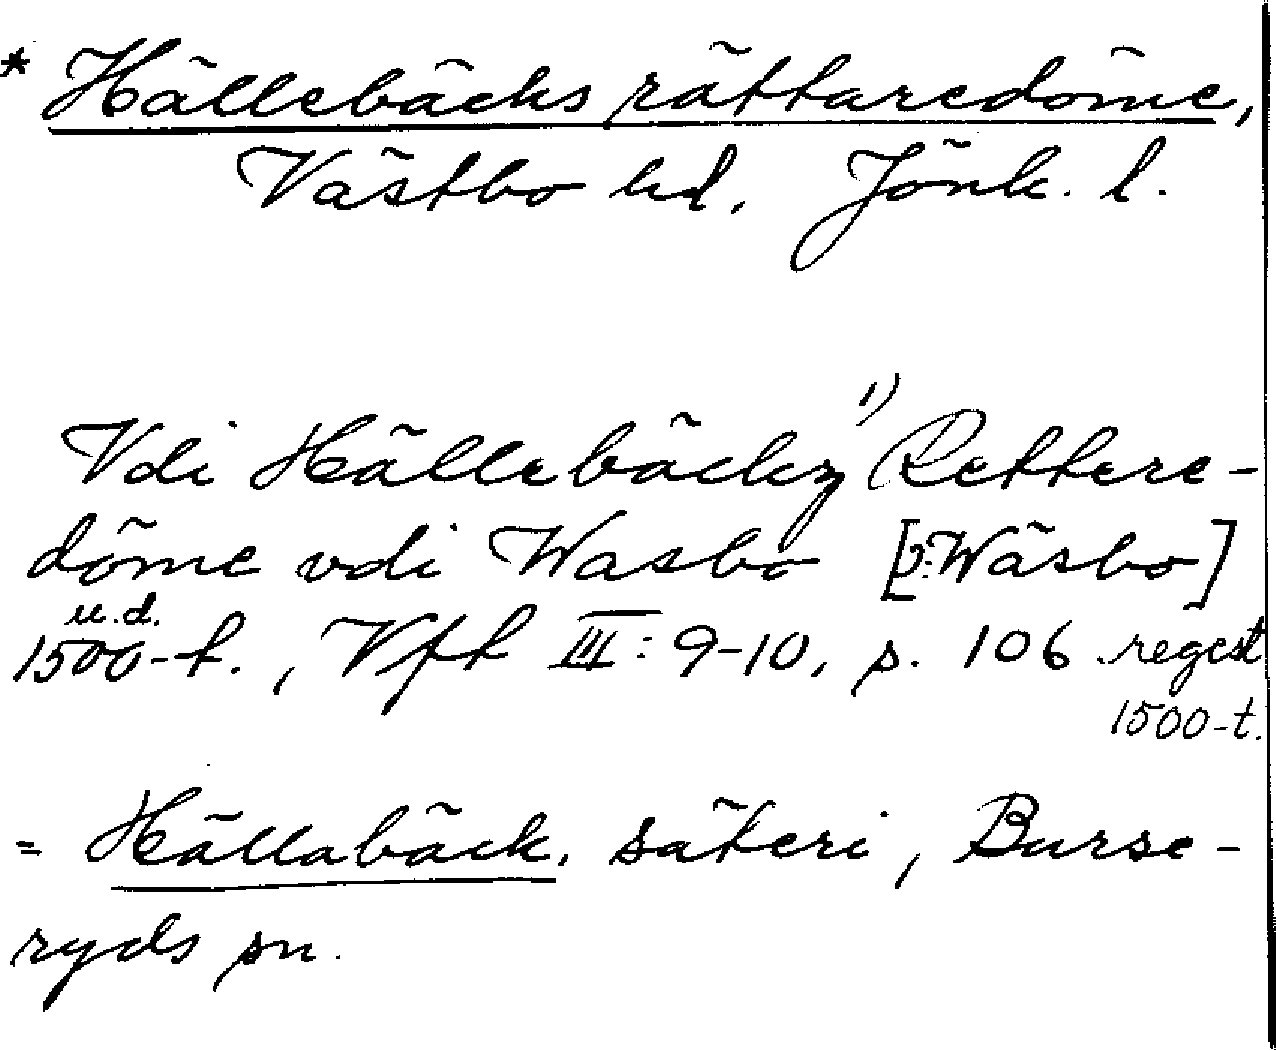 * Hällebäcks rättaredöme,
Västbo hd, Jönk. l.
Vdi Hällebäckz 1) Rettere-
döme vdi Wasbo [ɔ: Wäsbo]
u.d.
1500-t., Vfk III: 9-10, s. 106 regest
1500-t.
= Hällabäck, säteri, Burse-
ryds sn.